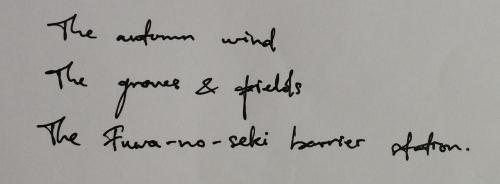 The autumn wind
The groves & fields
The Fuwa-no-seki barrier station.